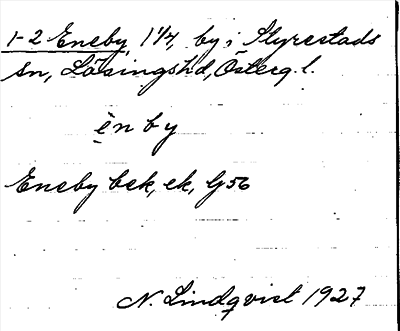 1-2 Eneby, 1 1/4, by i Styrestads
sn, Lösings hd, Österg. l.
ènby
Eneby bek, ek, G 56
N. Lindqvist 1927